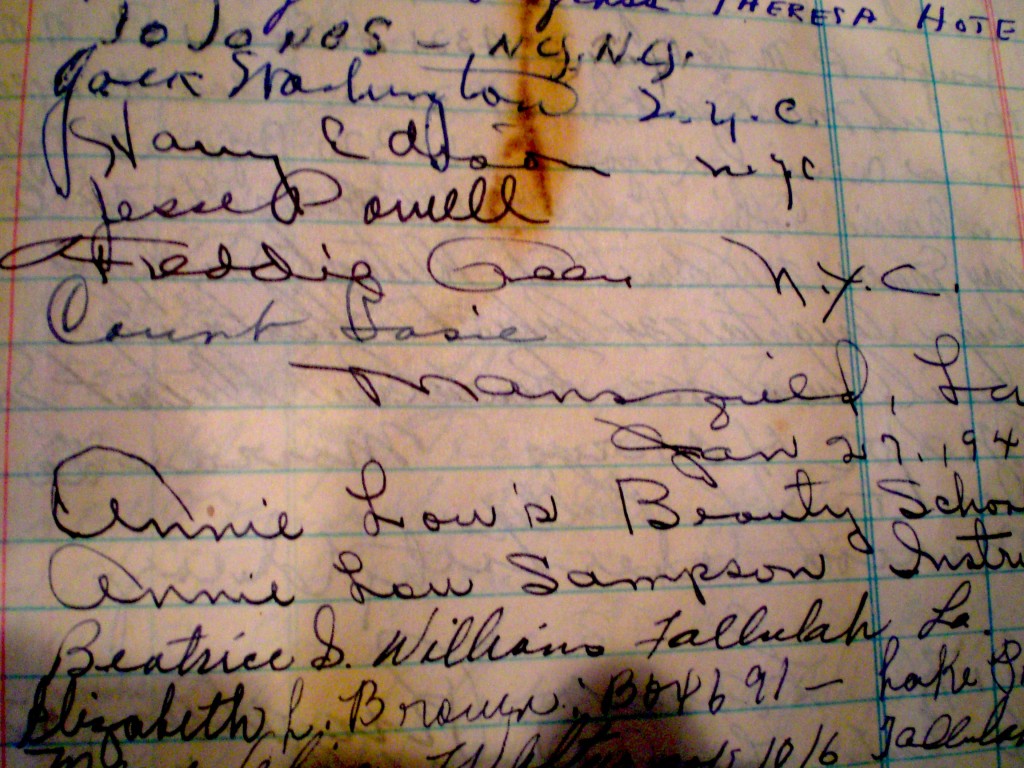 THERESA HOTE
Jo Jones - N.Y. N.Y.
Jack Washington N.Y.C.
Harry Edison nyc
Jesse Powell
Freddie Green N.Y.C.
Count Basie
Mansfield, La
Jan 27, 194
Annie Lou's Beauty Schoo
Annie Lou Sampson Instru
Beatrice S. Williams Tallulah, La.
Elizabeth L. Brown, Box 691 - Lake
1016 Tallulah